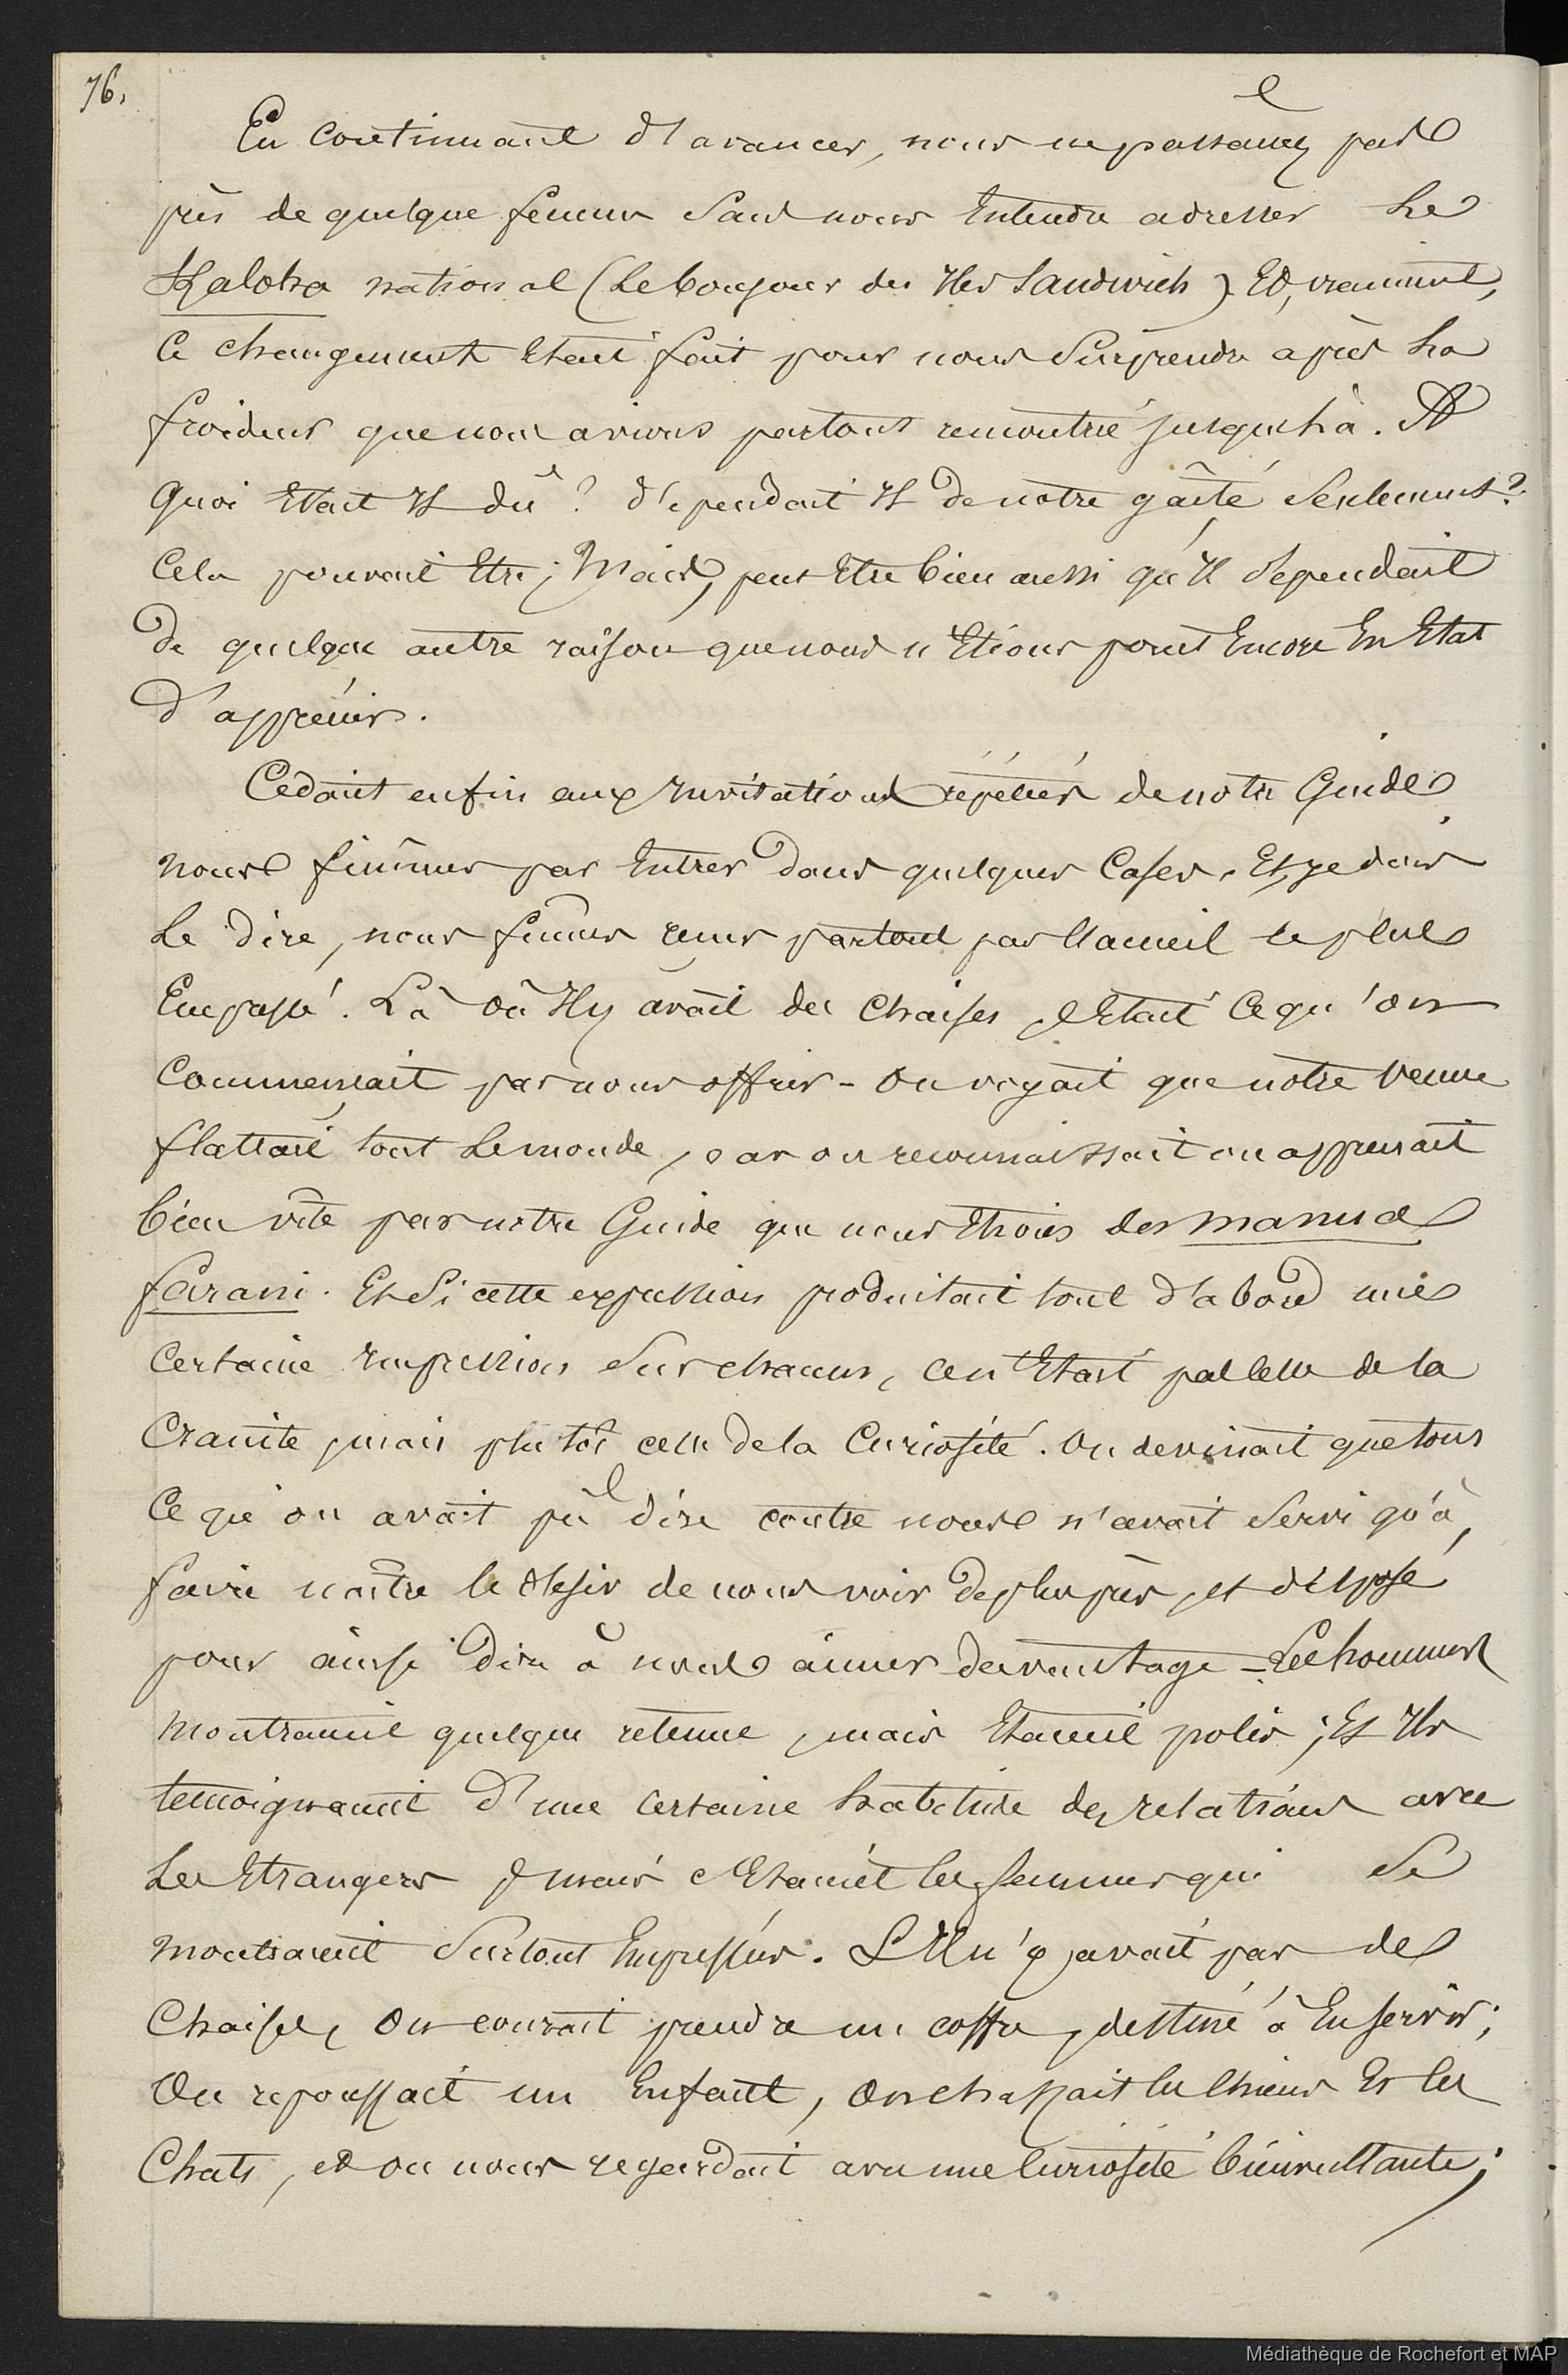 76.
En continuant d'avancer, nous ne passames pas
près de quelque femme sans nous Entendre adresser Le
Haloha national (Le bonjour des Iles Sandwich). Et, vraiment,
Ce changement Etait fait pour nous Surprendre après La
froideur que nous avions partout rencontrée jusque là. A
quoi Etait Il dû ? dépendait Il de notre gaîté Seulement ?
Cela pouvait Etre ; Mais, peut Etre bien aussi qu'Il dependait
de quelque autre raison que nous n'Etions point Encore En Etat
d'apprécier.
Cédant enfin aux Invitations répétées de notre Guide
nous finimes par Entrer dans quelques Cases. Et, je dois
Le dire, nous fumes reçus partout par l'acceuil le plus
Empressé. Là où Il y avait des Chaises, c'Etait Ce qu'on
Commençait par nous offrir - On voyait que notre venue
flattait tout Le monde, car on reconnaissait ou apprenait
bien vite par notre Guide que nous Etions des manua
farani. Et Si cette expression produisait tout d'abord une
Certaine Impression Sur chacun, ce n'Etait pas celle de la
Crainte, mais plutôt celle de la Curiosité. On devinait que tout
Ce qu'on avait pû dire contre nous n'avait Servi qu'à
faire naître le desir de nous voir de plus près, et disposé
pour ainsi dire à nous aimer davantage - Les hommes
montraient quelque retenue, mais Etaient polis ; Et Ils
temoignaient d'une certaine habitude des relations avec
Les Etrangers, mais c'Etaient les femmes qui Se
montraient Surtout Empressées. S'Il n'y avait pas de
Chaises, On courait prendre un coffre, destiné à En servir ;
On repoussait un Enfant, On chassait les chiens Et les
Chats, et on nous regardait avec une Curiosité bienveillante ;
Médiathèque de Rochefort et MAP